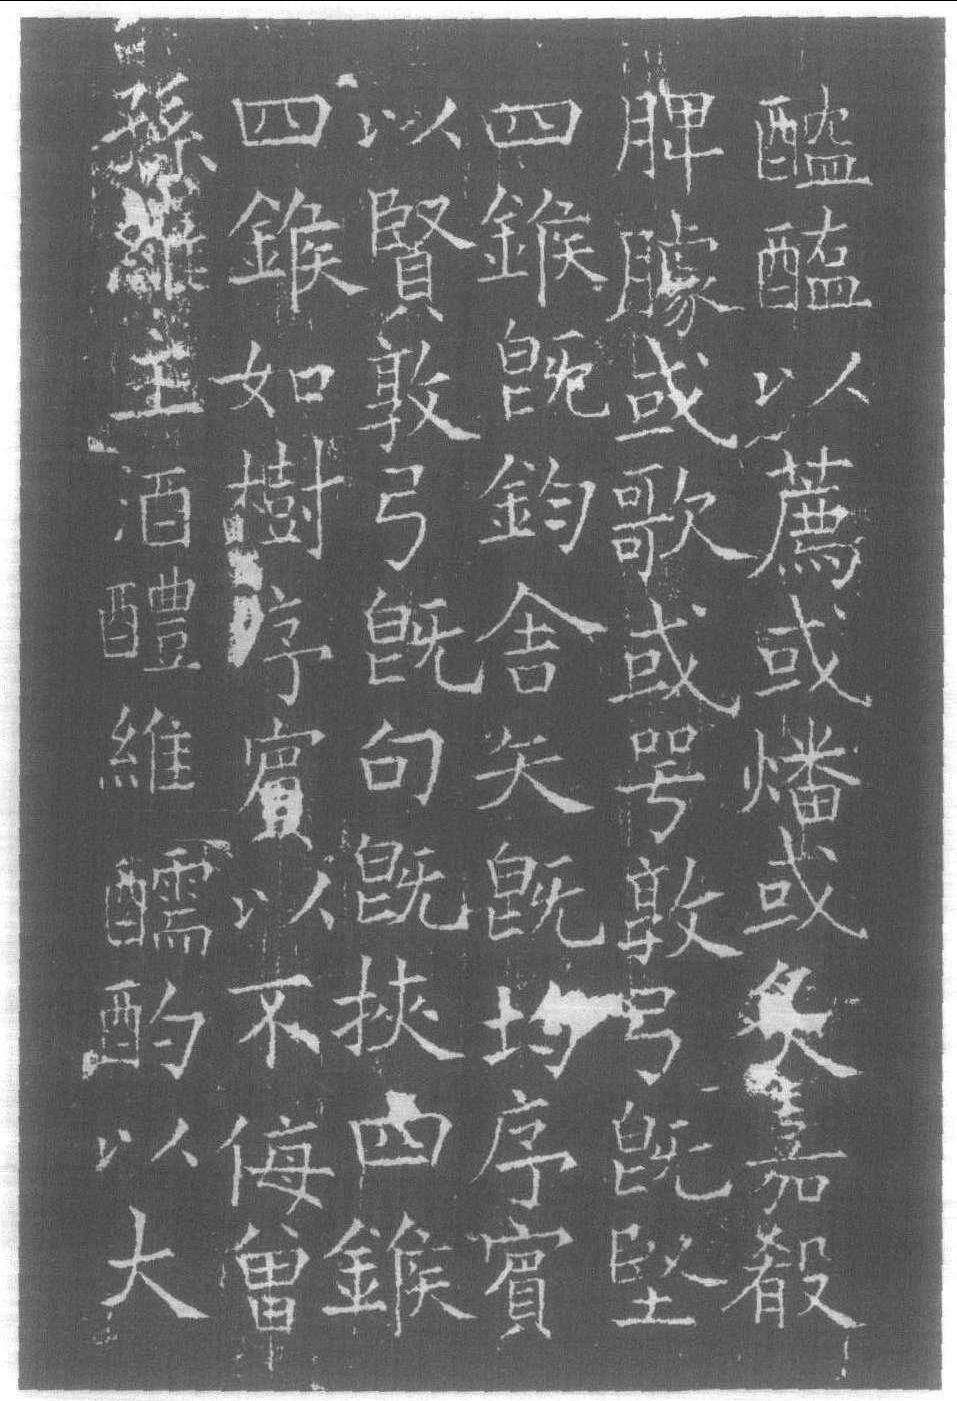 醓醢以薦或燔或炙嘉殽
脾臄或歌或咢敦弓既堅
四鍭既鈞舍矢既均序賓
以賢敦弓既句既挾四鍭
四鍭如樹序賓以不侮曾
孫維主酒醴維醹酌以大